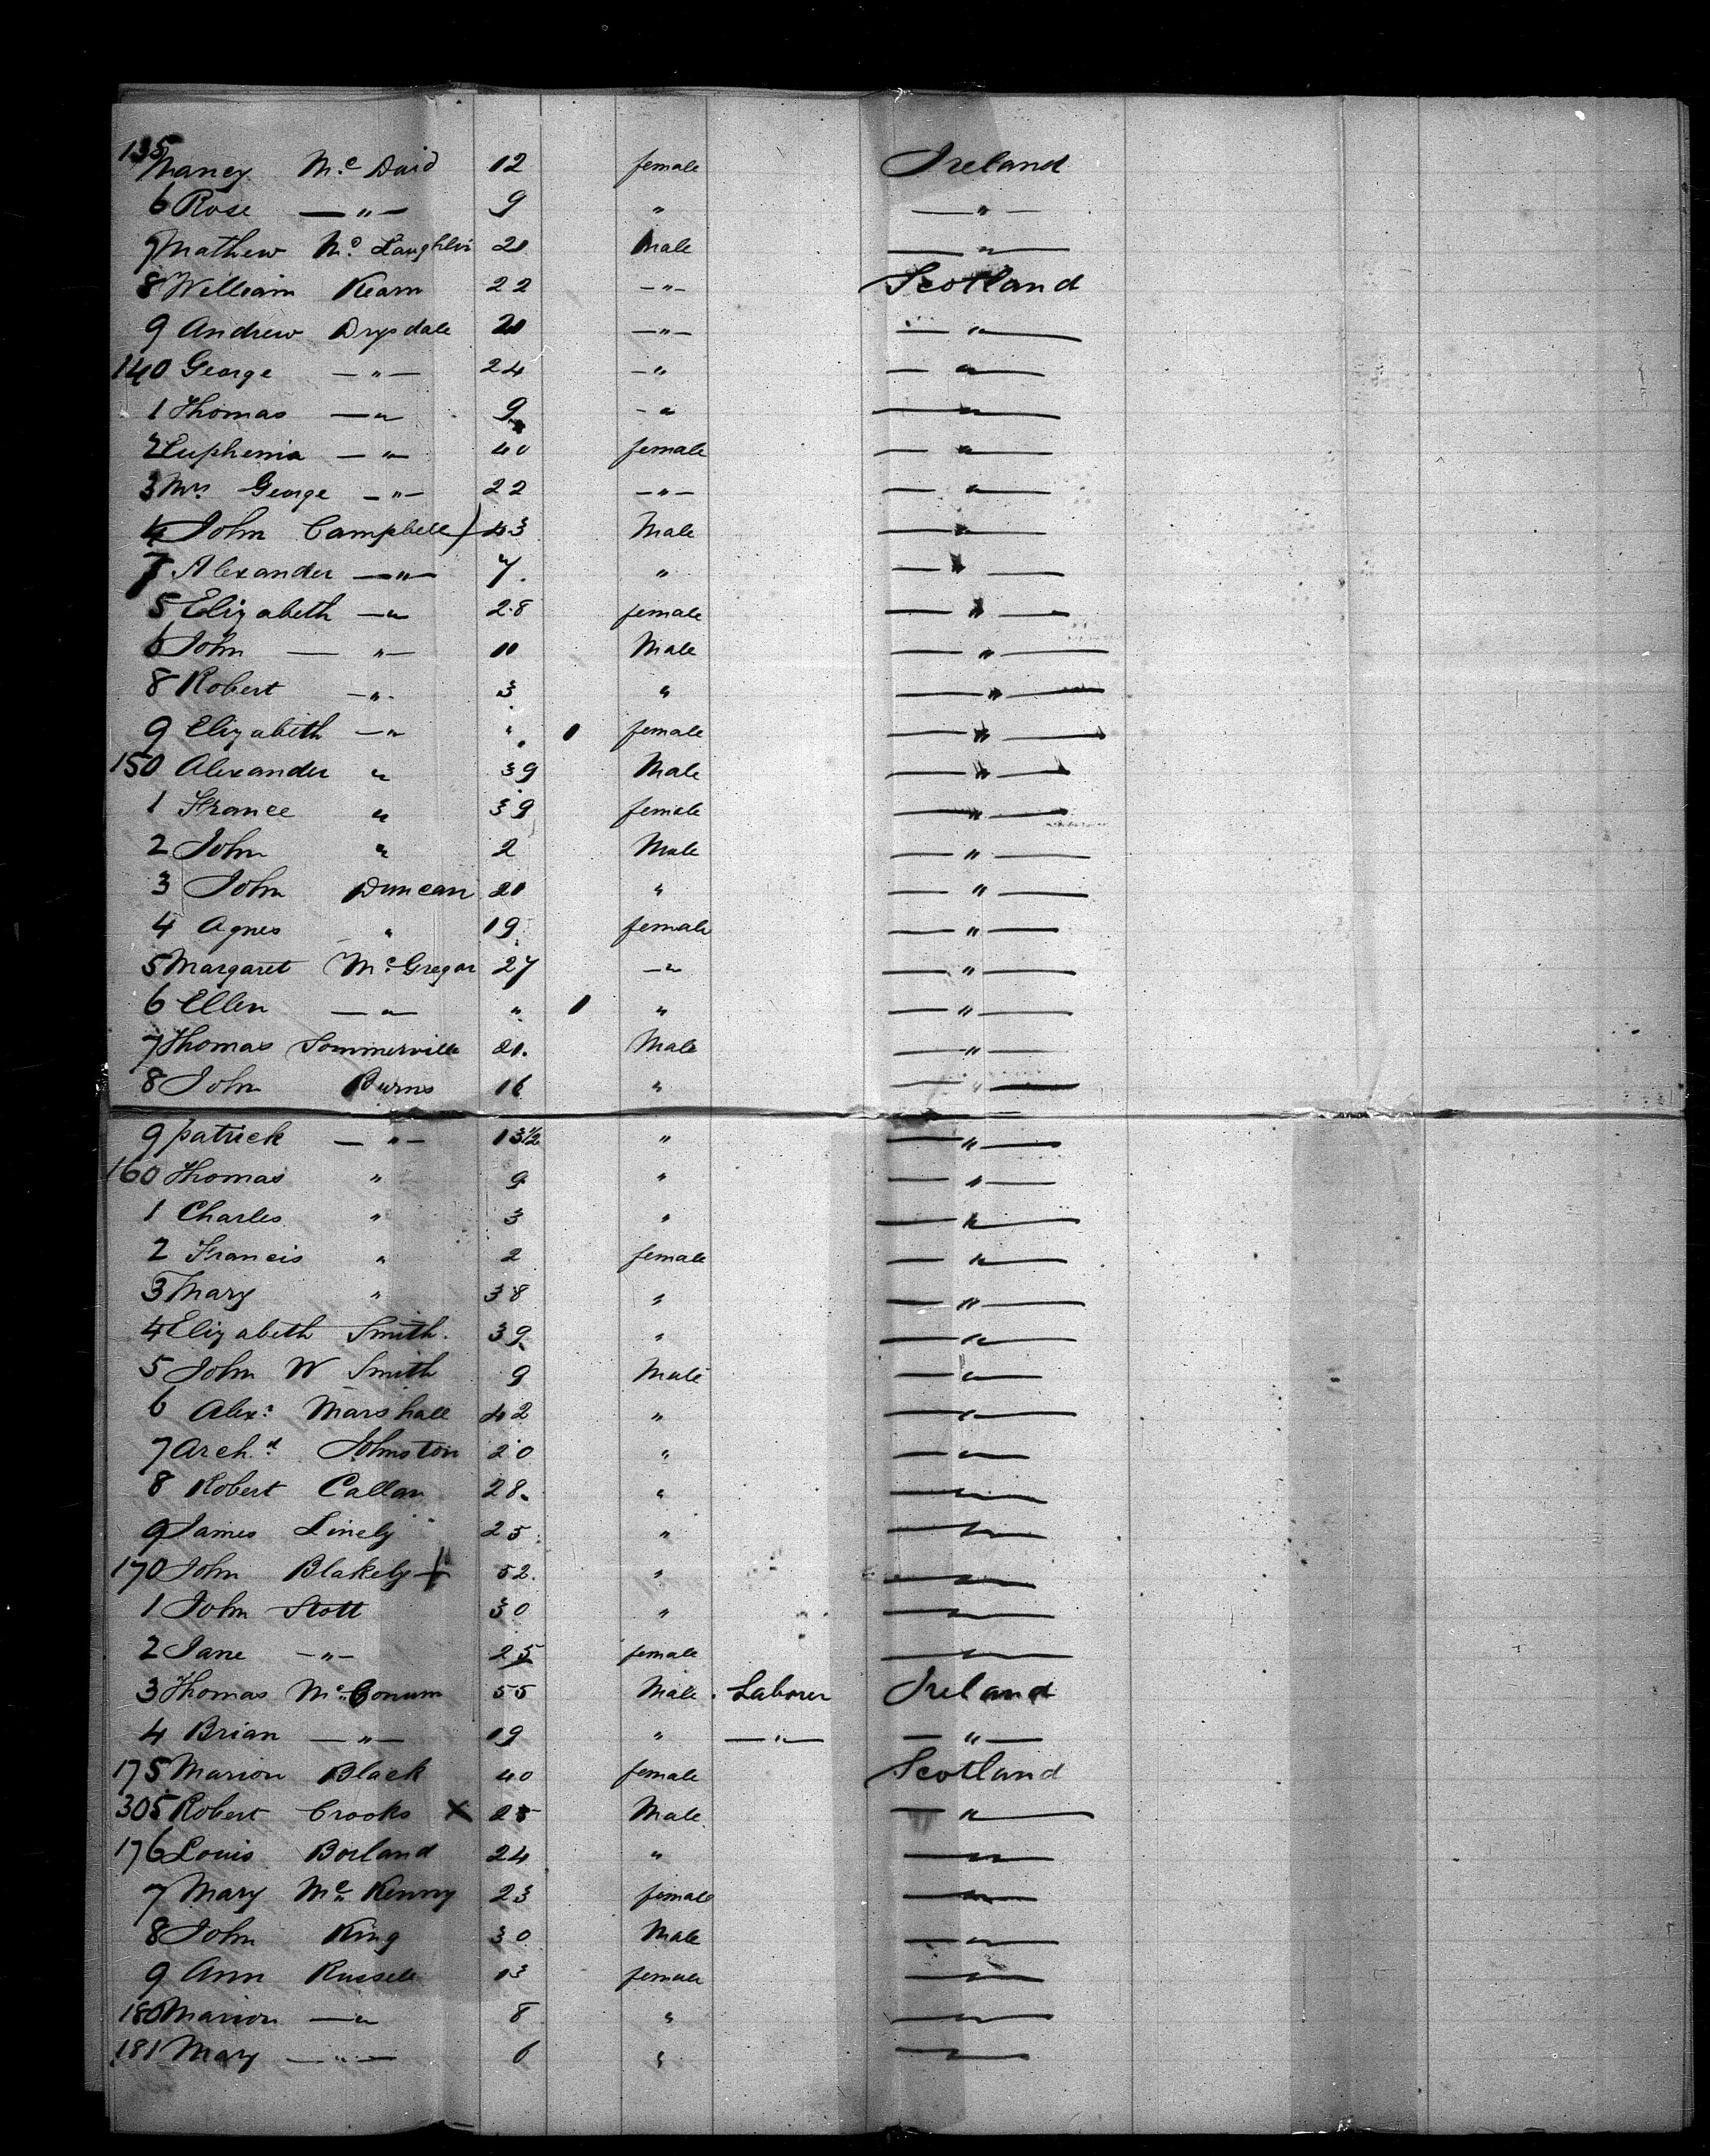 135 Nancy Mc Daid 12 female Ireland
6 Rose — " — 9 " — " —
7 Mathew Mc Laughlin 20 Male — " —
8 William Kearn 22 — " — Scotland
9 Andrew Drysdale 20 — " — — " —
140 George — " — 24 — " — " —
1 Thomas — " 9 — " — " —
2 Euphemia — " — 40 female — " —
3 Mrs George — " — 22 — " — — " —
4 John Campbell 43 Male — " —
7 Alexander — " — 7. " — " —
5 Elizabeth — " 28 female — " —
6 John — " — 10 Male — " —
8 Robert — " — 3 " — " —
9 Elizabeth — " " 1 female — " —
150 Alexander " 39 Male — " —
1 France " 39 female — " —
2 John " 2 Male — " —
3 John Duncan 20 " — " —
4 Agnes " 19 female — " —
5 Margaret Mc Gregor 27 — " — " —
6 Ellen — " — " 1 " — " —
7 Thomas Sommerville 20. Male — " —
8 John Burns 16 " — " —
9 patrick — " — 13½ " — " —
160 Thomas " 9 " — " —
1 Charles " 3 " — " —
2 Francis " 2 female — " —
3 Mary " 38 " — " —
4 Elizabeth Smith. 39 " — " —
5 John W Smith 9 Male — " —
6 Alexr Marshall 42 " — " —
7 Archd Johnston 20 " — " —
8 Robert Callan 28 " — " —
9 James Linely 25 " — " —
170 John Blakely + 52. " — " —
1 John Stott 30 " — " —
2 Jane — " — 25 female — " —
3 Thomas Mc Conum 55 Male Laborer Ireland
4 Brian — " — 19 " — " — — " —
175 Marion Black 40 female Scotland
305 Robert Crooks X 25 Male — " —
176 Louis Borland 24 " — " —
7 Mary Mc Kenny 23 female — " —
8 John King 30 Male — " —
9 Ann Russell 13 female — " —
180 Marion — " 8 " — " —
181 Mary — " — 6 " — " —